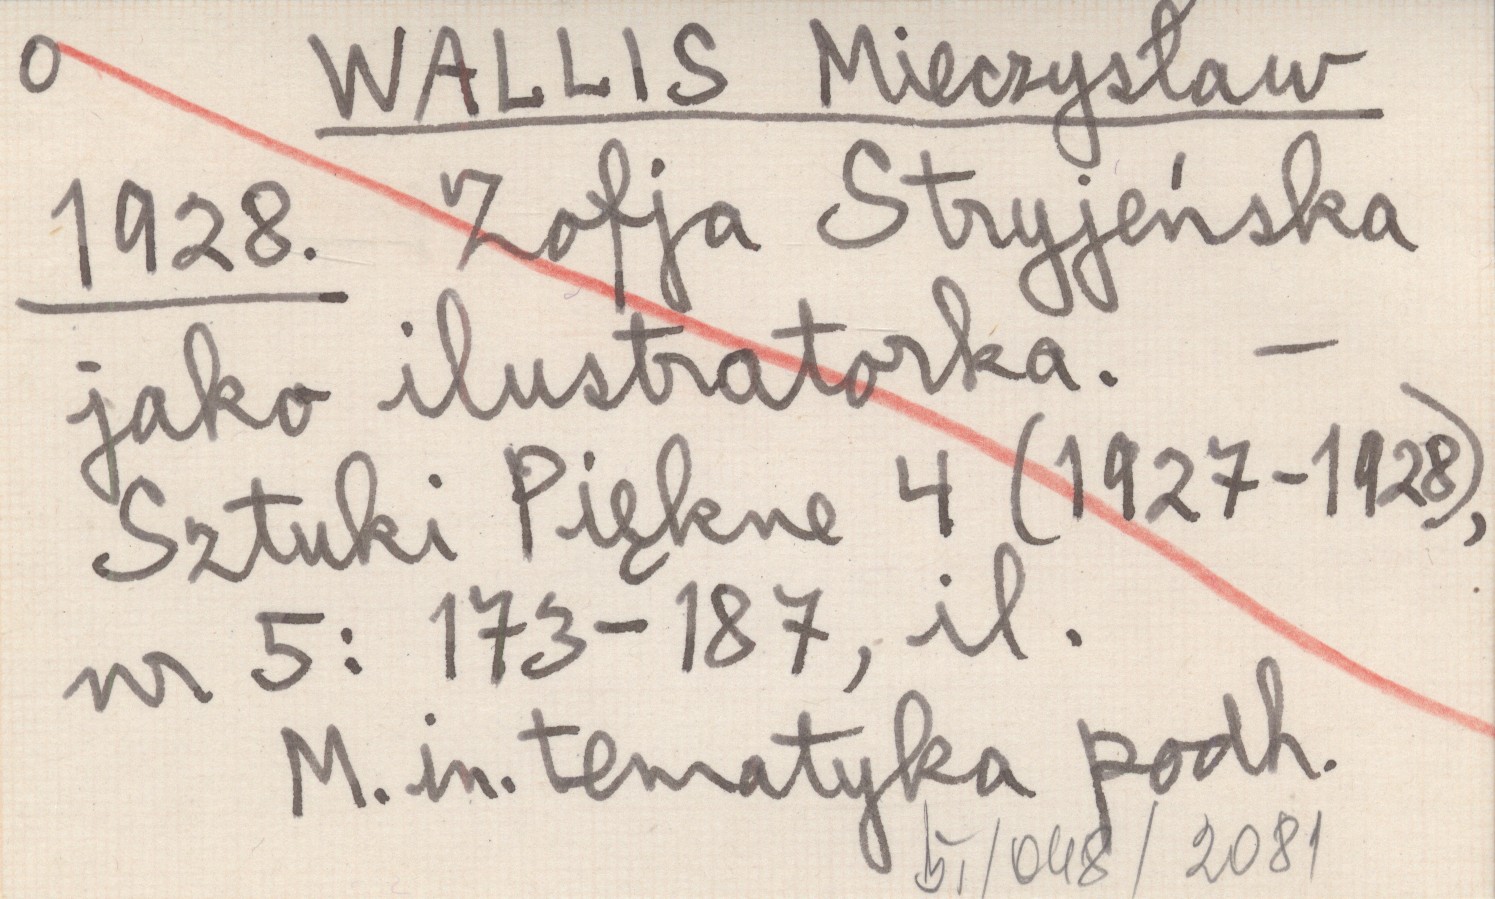 O WALLIS Mieczysław
1928. Zofja Stryjeńska
jako ilustratorka. —
Sztuki Piękne 4 (1927-1928),
nr 5: 173-187, il.
M.in. tematyka podh.
/048/2081